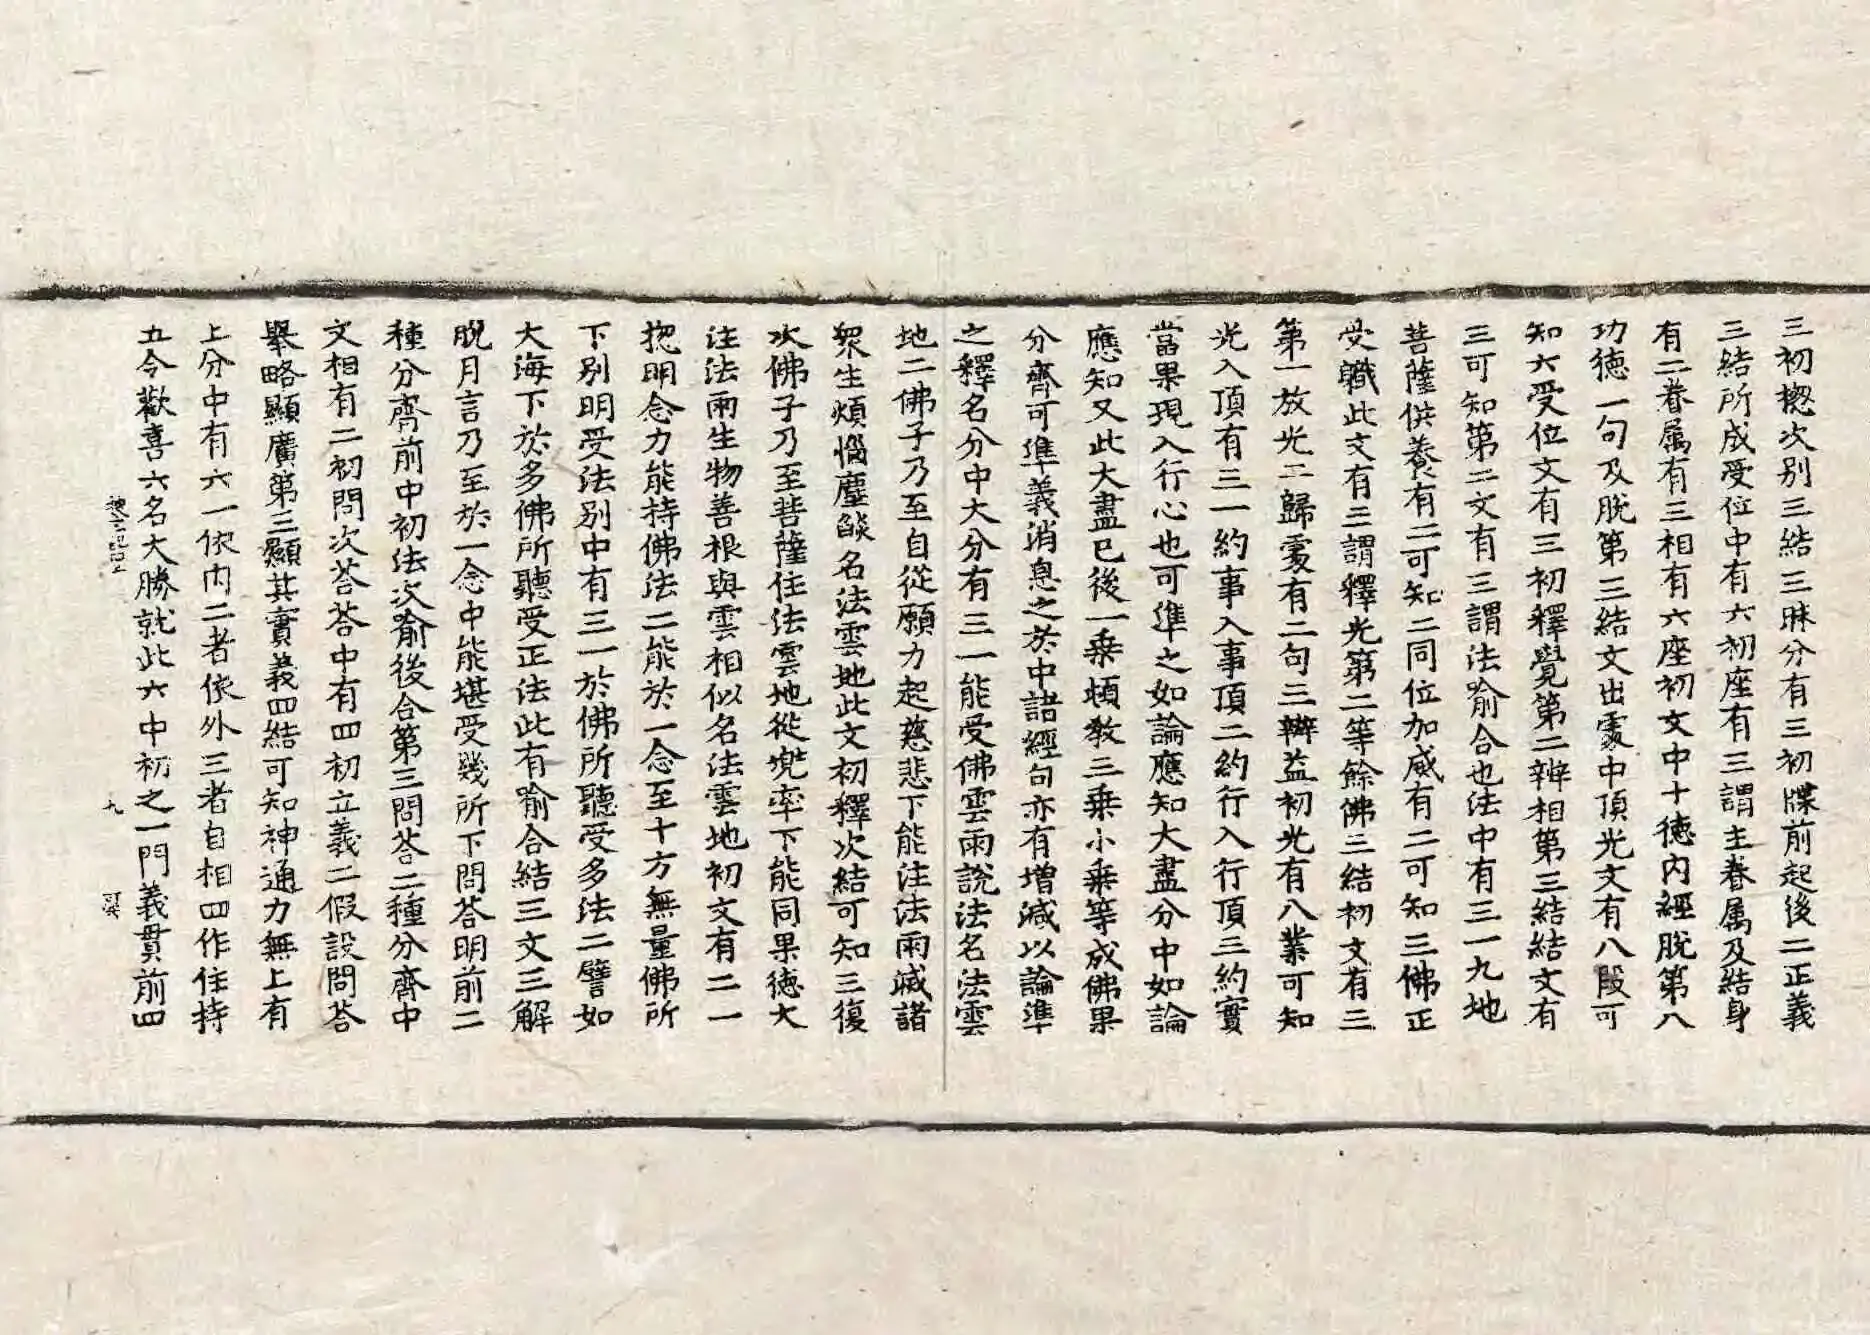 三初揔次別三結三昧分有三初牒前起後二正義
三結所成受位中有六初座有三謂主眷属及結身
有二眷属有三相有六座初文中十德內經脫第八
功德一句及脫第三結文出䖏中頂光文有八段可
知六受位文有三初釋覺第二辨相第三結結文有
三可知第二文有三謂法喻合也法中有三一九地
菩薩供養有二可知二同位加威有二可知三佛正
受職此文有三謂釋光第二等餘佛三結初文有三
第一放光二歸䖏有二句三辨益初光有八業可知
光入頂有三一約事入事頂二約行入行頂三約實
當果現入行心也可準之如論應知大盡分中如論
應知又此大盡已後一乗頓教三乗小乗等成佛果
分齊可準義消息之於中諸經句亦有增減以論準
之釋名分中大分有三一能受佛雲雨說法名法雲
地二佛子乃至自從願力起慈悲下能注法雨滅諸
衆生煩惱塵燄名法雲地此文初釋次結可知三復
次佛子乃至菩薩住法雲地從兠率下能同果德大
注法雨生物善根與雲相似名法雲地初文有二一
揔明念力能持佛法二能於一念至十方無量佛所
下別明受法別中有三一於佛所聽受多法二譬如
大海下於多佛所聽受正法此有喻合結三文三解
脫月言乃至於一念中能堪受幾所下問荅明前二
種分齊前中初法次喻後合第三問荅二種分齊中
文相有二初問次荅荅中有四初立義二假設問荅
舉略顯廣第三顯其實義四結可知神通力無上有
上分中有六一依內二者依外三者自相四作住持
五令歡喜六名大勝就此六中初之一門義貫前四
九